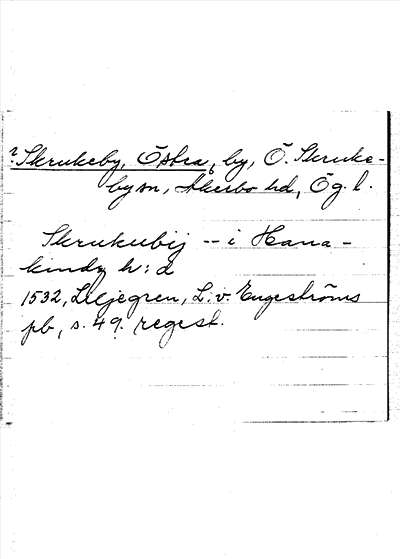 ? Skrukeby, Östra, by, Ö. Skruke-
by sn, Åkerbo hd, Ög. l.
Skrukubij -- i Hana-
kindz h:d
1532, Liljegren, L. v. Engeströms
pb, s. 49. regest.